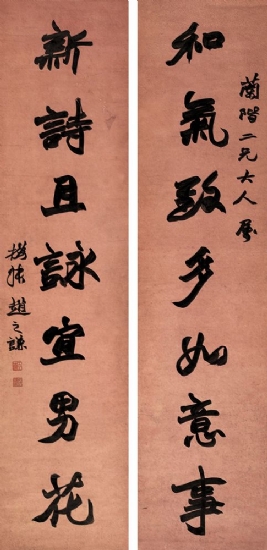 蘭階二兄大人属
和氣致多如意事
新詩且詠宜男花
撝叔趙之謙